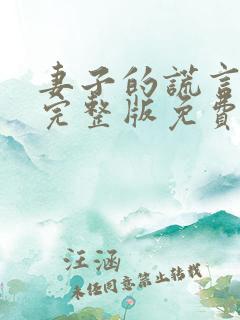 妻子的谎言
完整版免费
汪涵
未经同意禁止转载